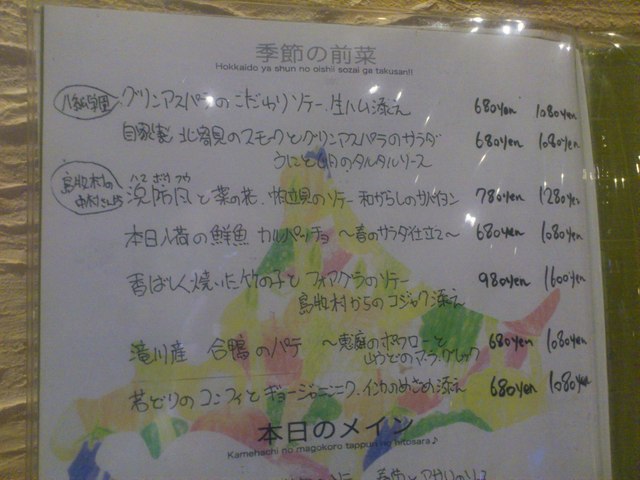 季節の前菜
Hokkaido ya shun no oishii sozai ga takusan!!
グリンアスパラのこだわりソテー、生ハム添え 680yen 1080yen
自家製 北寄貝のスモークとグリンアスパラのサラダ 680yen 1080yen
うにと のタルタルソース
島牧村の
中村さんの
ハマ ボウ フウ
浜防風と菜の花、帆立貝のソテー 和がらしのサバイヨン 780yen 1280yen
本日入荷の鮮魚 カルパッチョ 〜春のサラダ仕立て〜 680yen 1080yen
香ばしく焼いた竹の子と フォアグラのソテー 980yen 1600yen
島牧村からの 添え
滝川産 合鴨のパテ 〜恵庭のポワローと 680yen 1080yen
山うどのア・ラ・グレック
若どりのコンフィとギョージャニンニク、インカのめざめ添え 680yen 1080yen
本日のメイン
Kamehachi no magokoro tappuri no hitosara♪